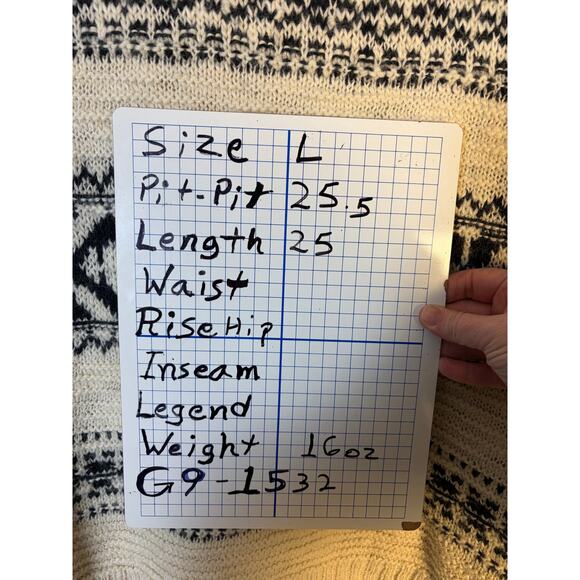 Size L
Pit-Pit 25.5
Length 25
Waist
Rise Hip
Inseam
Legend
Weight 16oz
G9-1532